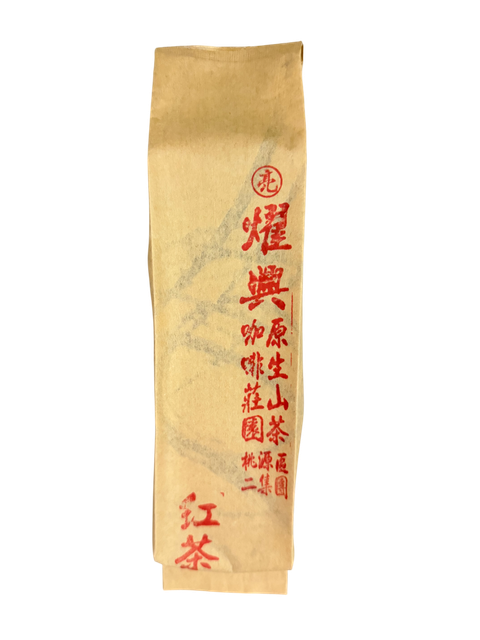 亮
耀興
原生山茶
咖啡莊園
桃源區
二集團
紅茶